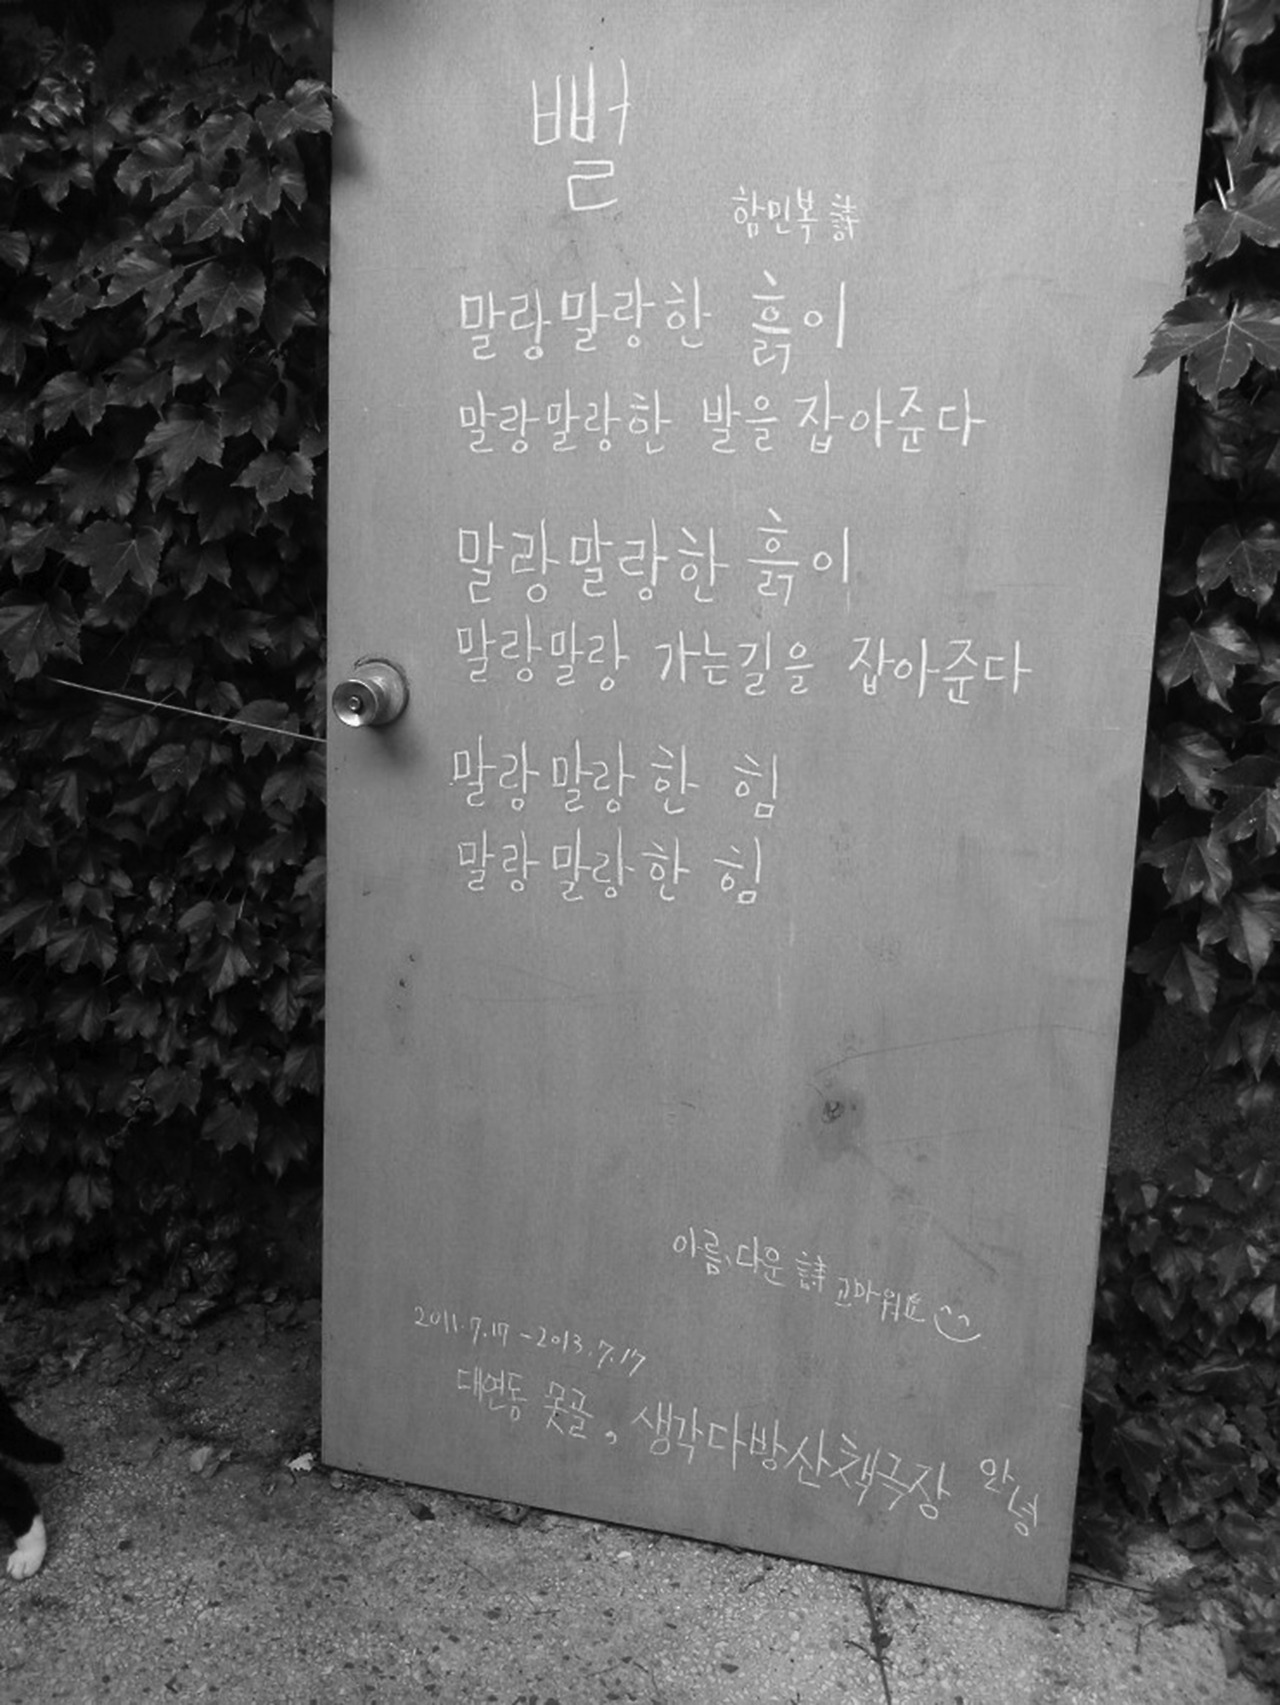 뻘
함민복 詩
말랑말랑한 흙이
말랑말랑한 발을 잡아준다
말랑말랑한 흙이
말랑말랑 가는길을 잡아준다
말랑말랑한 힘
말랑말랑한 힘
아름다운 詩 고마워요
2011.7.17 - 2013.7.17
대연동 못골, 생각다방산책극장 안녕